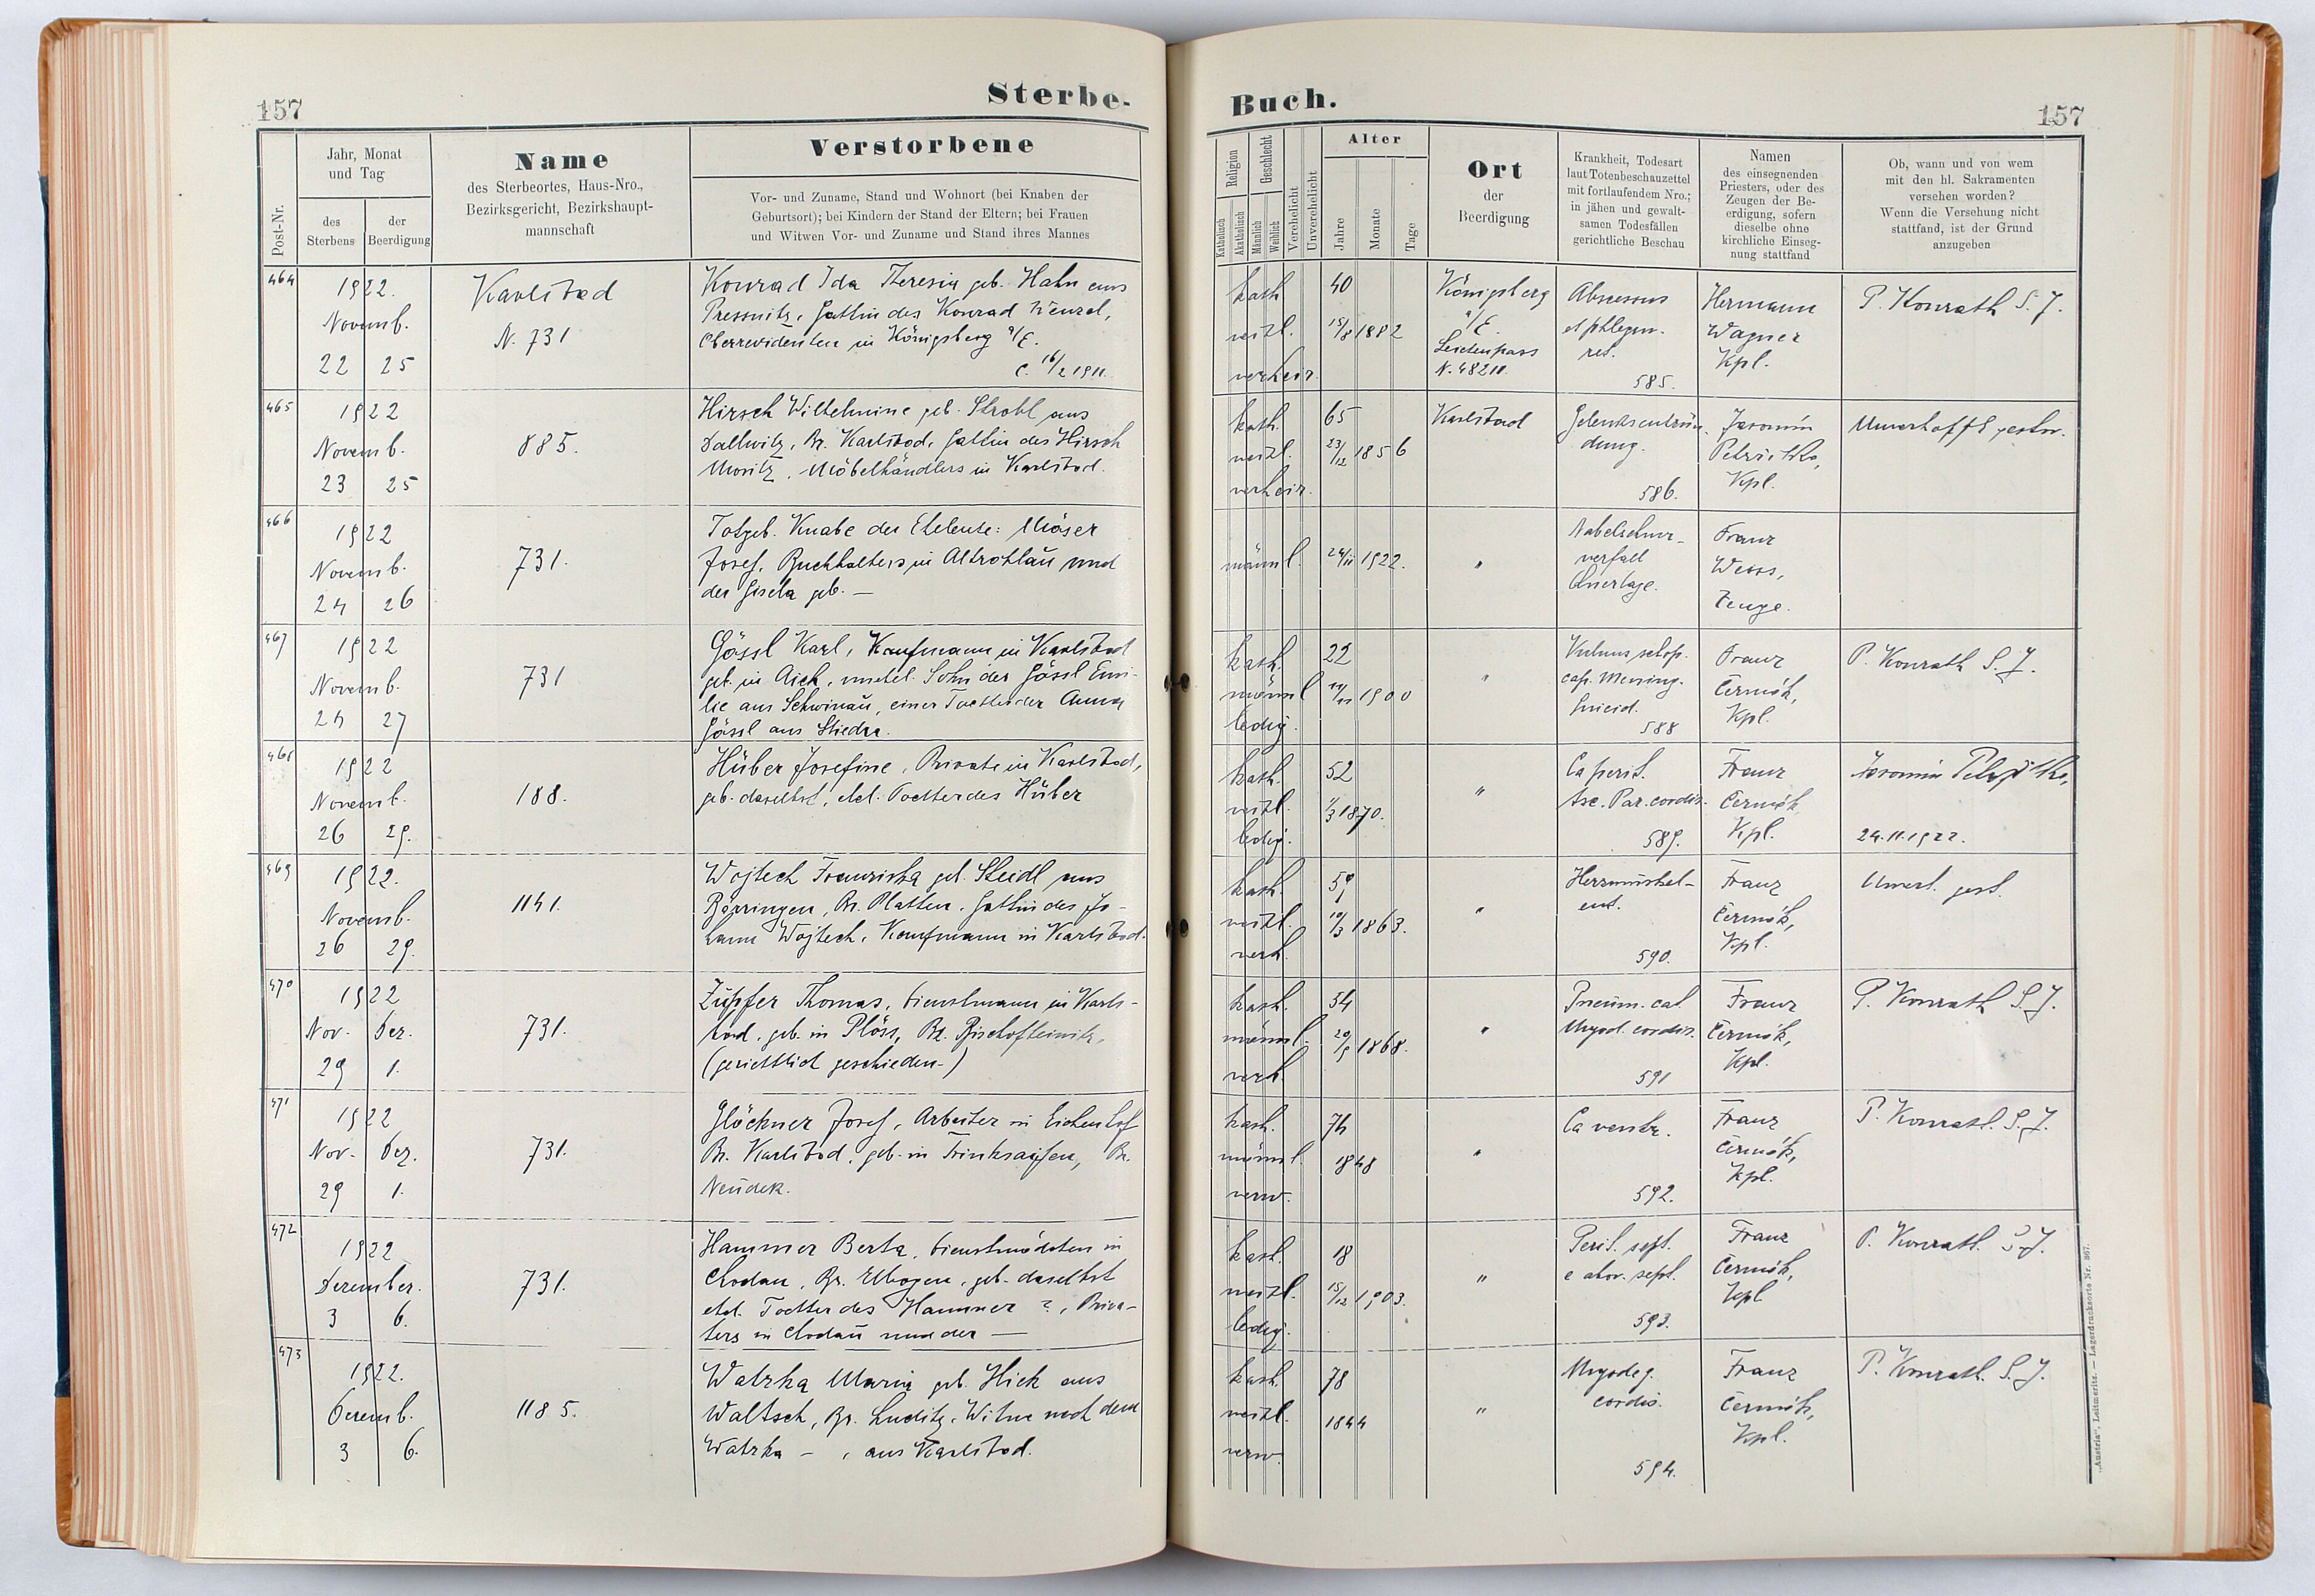 157
Sterbe-
Post-Nr.
Jahr, Monat
und Tag
des
Sterbens
der
Beerdigung
Name
des Sterbeortes, Haus-Nro.,
Bezirksgericht, Bezirkshaupt-
mannschaft
Verstorbene
Vor- und Zuname, Stand und Wohnort (bei Knaben der
Geburtsort); bei Kindern der Stand der Eltern; bei Frauen
und Witwen Vor- und Zuname und Stand ihres Mannes
464
1922.
Novemb.
22 25
Karlsbad
N. 731
Konrad Ida Theresia geb. Hahn aus
Pressnitz, Gattin des Konrad Wenzel,
Oberrevidenten in Königsberg a/E.
C. 16/2 1911.
465
1922
Novemb.
23 25
885.
Hirsch Wilhelmine geb. Strobl aus
Dallwitz, Bz. Karlsbad, Gattin des Hirsch
Moritz, Möbelhändlers in Karlsbad.
466
1922
Novemb.
24 26
731.
Totgeb. Knabe der Eheleute: Möser
Josef, Buchhalters in Altrohlau und
der Gisela geb. —
467
1922
Novemb.
24 27
731
Gössl Karl, Kaufmann in Karlsbad
geb. in Aich, unehel. Sohn der Gössl Emi-
lie aus Schwinau, einer Tochter der Anna
Gössl aus Stiedra.
468
1922
Novemb.
26 29.
188.
Hüber Josefine, Private in Karlsbad,
geb. daselbst, ehel. Tochter des Hüber
469
1922.
Novemb.
26 29.
1141.
Wojtech Franziska geb. Steidl aus
Bärringen, Bz. Platten, Gattin des Jo-
hann Wojtech, Kaufmann in Karlsbad.
470
1922
Nov. Dez.
29 1.
731.
Züpfer Thomas, Dienstmann in Karls-
bad, geb. in Plöss, Bz. Bischofteinitz,
(gerichtlich geschieden.)
471
1922
Nov. Dez.
29 1.
731.
Glöckner Josef, Arbeiter in Eichenhof
Bz. Karlsbad, geb. in Trinksaifen, Bz.
Neudek.
472
1922
Dezember.
3 6.
731.
Hammer Berta, Dienstmädchen in
Chodau, Bz. Elbogen, geb. daselbst
ehel. Tochter des Hammer ?, Priva-
ters in Chodau und der —
473
1922.
Dezemb.
3 6.
1185.
Watzka Maria geb. Hick aus
Waltsch, Bz. Luditz, Witwe nach dem
Watzka – , aus Karlsbad.
Buch.
157
Religion
Katholisch
Akatholisch
Geschlecht
Männlich
Weiblich
Verehelicht
Unverehelicht
Alter
Jahre
Monate
Tage
Ort
der
Beerdigung
Krankheit, Todesart
laut Totenbeschauzettel
mit fortlaufendem Nro.;
in jähen und gewalt-
samen Todesfällen
gerichtliche Beschau
Namen
des einsegnenden
Priesters, oder des
Zeugen der Be-
erdigung, sofern
dieselbe ohne
kirchliche Einseg-
nung stattfand
Ob, wann und von wem
mit den hl. Sakramenten
versehen worden?
Wenn die Versehung nicht
stattfand, ist der Grund
anzugeben
kath.
weibl.
verheir.
40
15/8 1882
Königsberg
a/E.
Leichenpass
N. 48211.
Abscessus
et phlegm.
ret.
585.
Hermann
Wagner
Kpl.
P. Konrath S. J.
kath.
weibl.
verheir.
65
23/12 1856
Karlsbad
Gelenksentzün-
dung.
586.
Jaromin
Kpl.
Unverhofft gestor.
männl.
24/11 1922.
"
Nabelschnur-
verfall
Querlage.
Franz
Weiss,
Zeuge.
kath.
männl
ledig.
22
1900
"
Vulnus sclop.
cap. Mening.
Suicid.
588
Franz
Čermák,
Kpl.
P. Konrath S. J.
kath.
weibl.
ledig.
52
1/3 1870.
"
Ca perit.
Asc. Par. cordis.
589.
Franz
Čermák
Kpl.
Jaromin
24.11.1922.
kath.
weibl.
verh.
59
10/3 1863.
"
Herzmuskel-
ent.
590.
Franz
Čermák,
Kpl.
Unverh. gest.
kath.
männl.
verh.
54
20/9 1868.
"
Pneum. cat
Myod. cordis.
591
Franz
Čermák,
Kpl.
P. Konrath S. J.
kath.
männl.
verw.
74
1848
"
Ca ventr.
592.
Franz
Čermák,
Kpl.
P. Konrath. S. J.
kath.
weibl.
ledig.
18
15/12 1903.
"
Perit. sept.
e abor. sept.
593.
Franz
Čermák,
Kpl
P. Konrath. S. J.
kath.
weibl.
verw.
78
1844
"
Myodeg.
cordis.
594.
Franz
Čermák,
Kpl.
P. Konrath. S. J.
„Austria“, Leitmeritz. — Lagerdrucksorte Nr. 867.